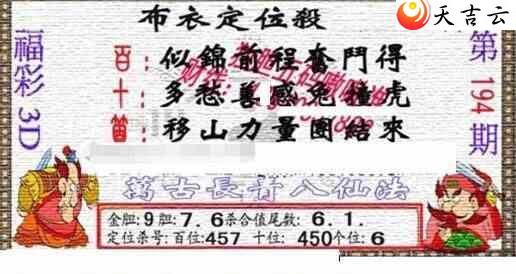 布衣定位殺
天吉云
福彩3D
百：似錦前程奮鬥得
十：多愁善感兔撞虎
笛：移山力量團結來
第194期
萬古長青八仙法
金胆:9胆:7.6杀合值尾数:6.1.
定位杀号:百位:457 十位:450个位:6